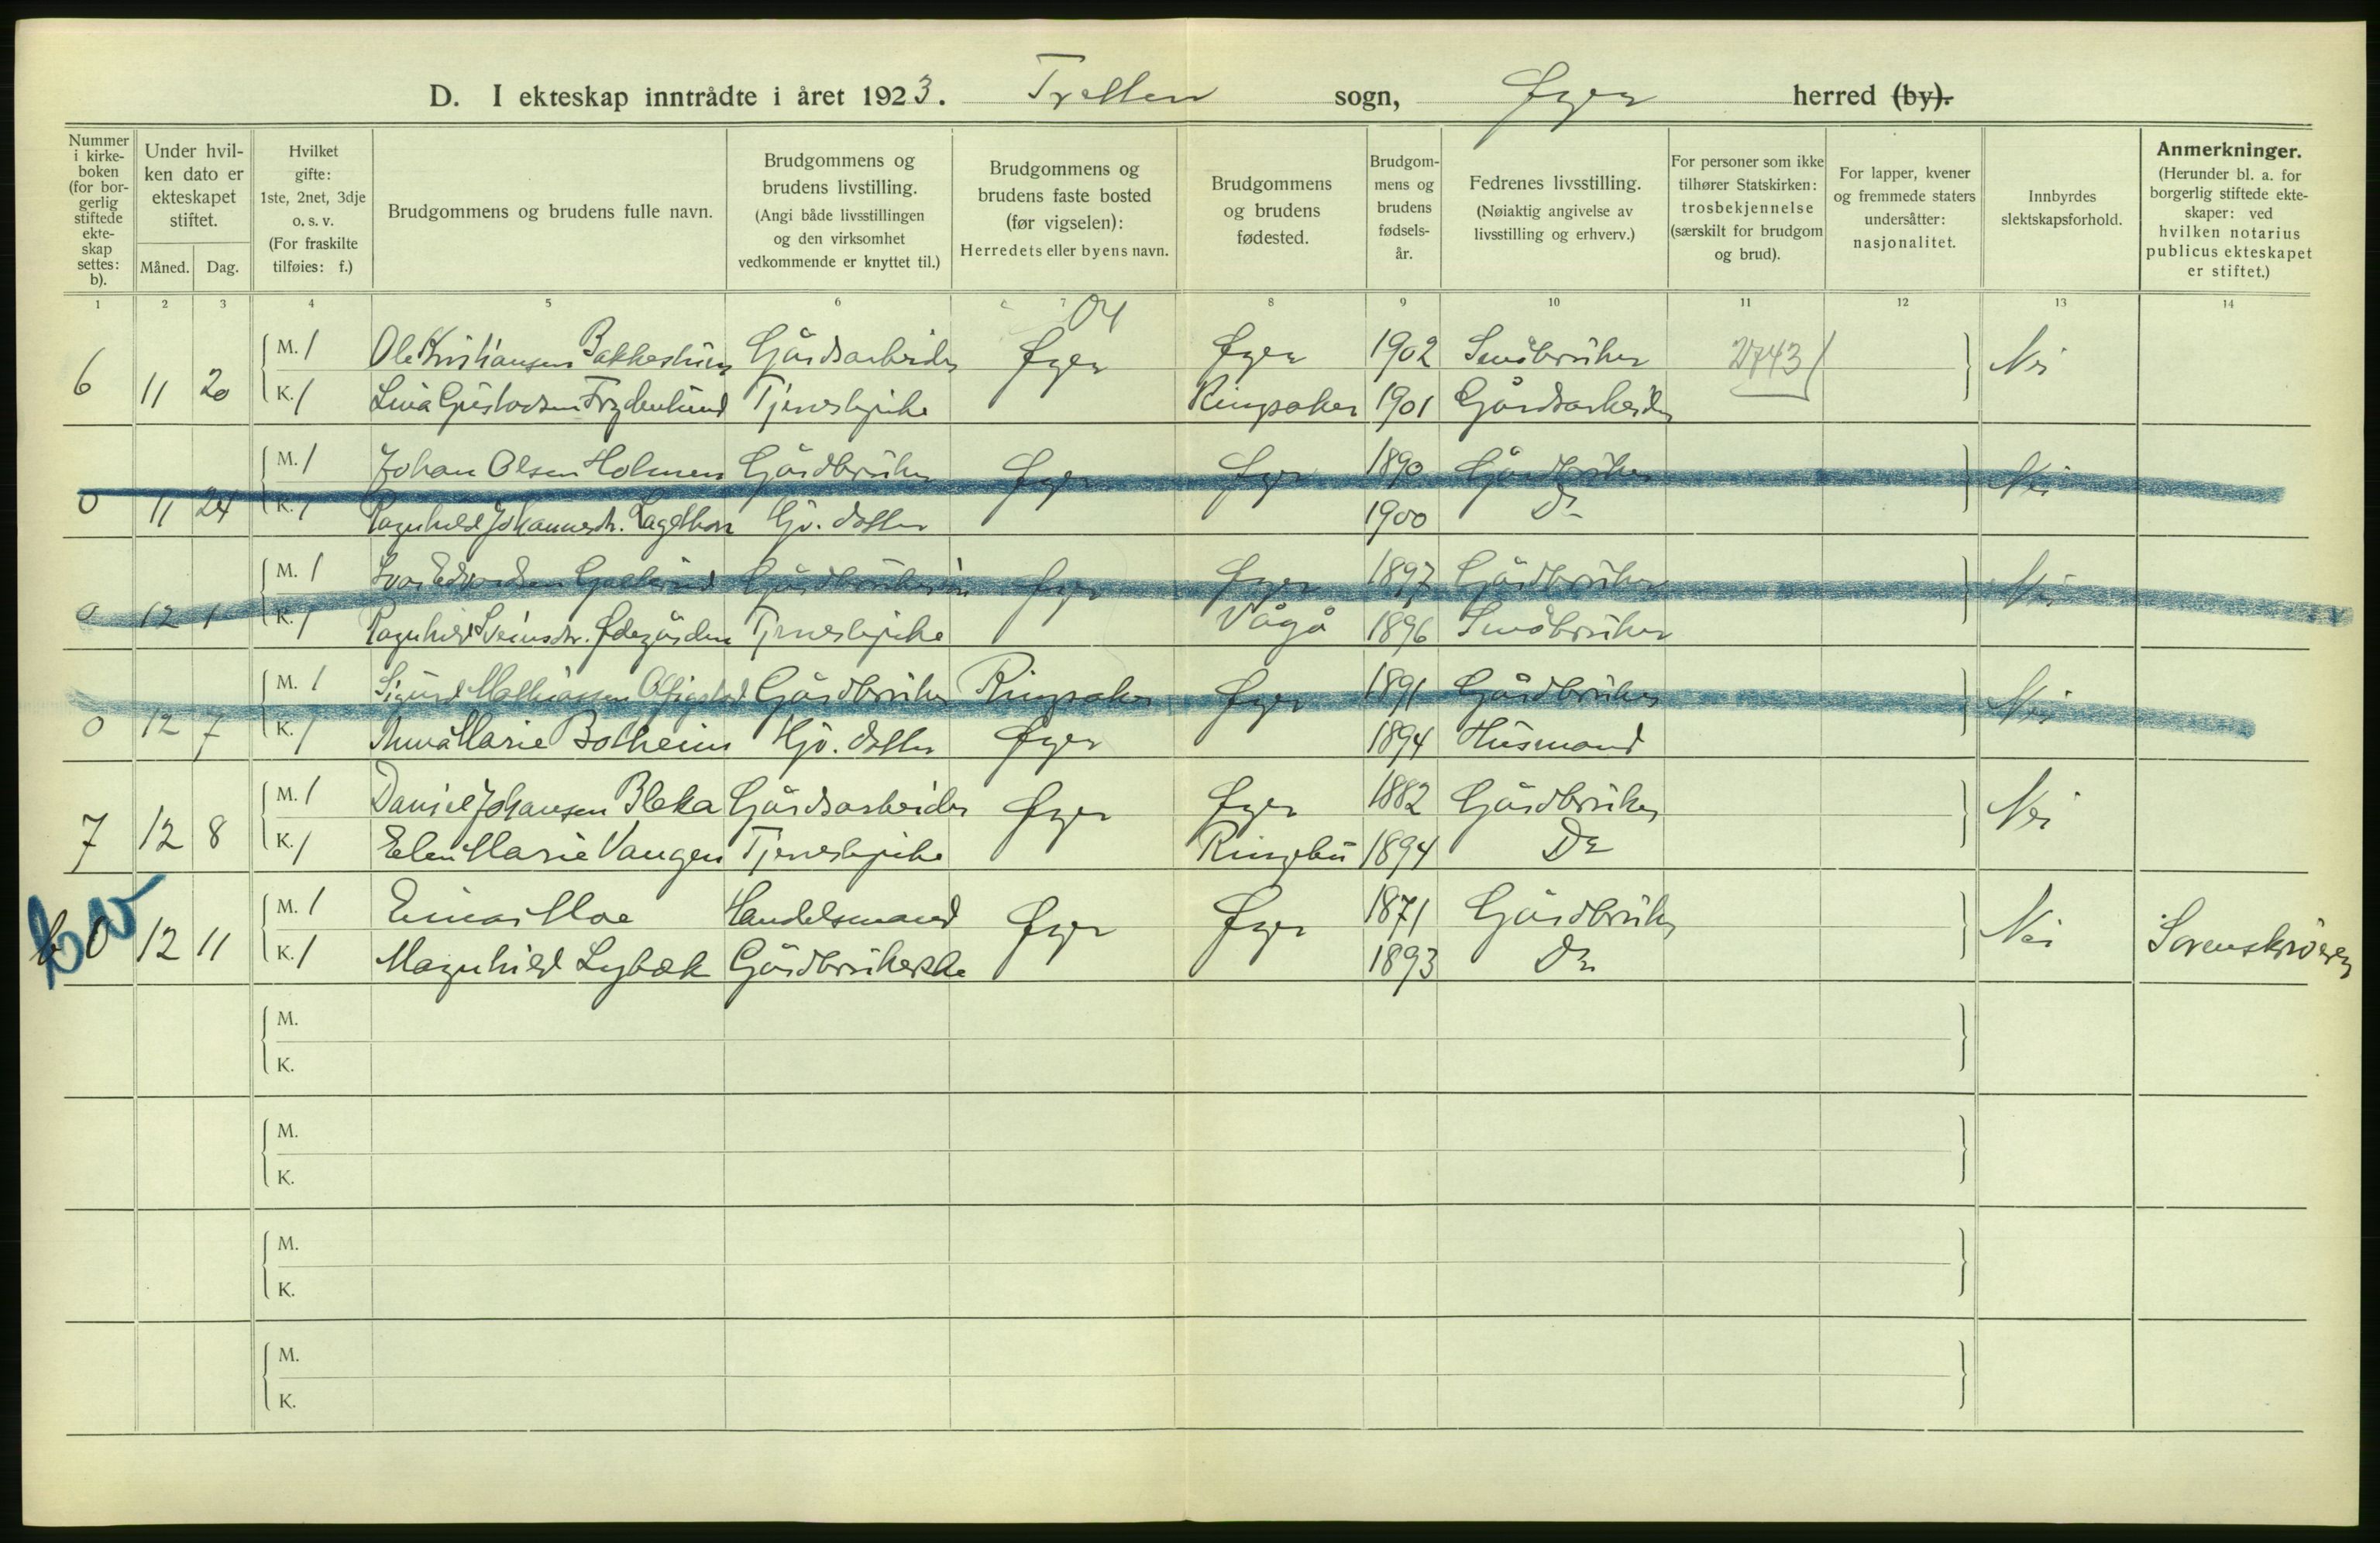 D. I ekteskap inntrådte i året 1923. Tretten sogn, Øyer herred (by).
Nummer i kirkeboken (for borgerlig stiftede ekteskap settes: b).
Under hvilken dato er ekteskapet stiftet.
Måned. Dag.
Hvilket gifte: 1ste, 2net, 3dje o. s. v. (For fraskilte tilføies: f.)
Brudgommens og brudens fulle navn.
Brudgommens og brudens livstilling. (Angi både livsstillingen og den virksomhet vedkommende er knyttet til.)
Brudgommens og brudens faste bosted (før vigselen): Herredets eller byens navn.
Brudgommens og brudens fødested.
Brudgommens og brudens fødselsår.
Fedrenes livsstilling. (Nøiaktig angivelse av livsstilling og erhverv.)
For personer som ikke tilhører Statskirken: trosbekjennelse (særskilt for brudgom og brud).
For lapper, kvener og fremmede staters undersåtter: nasjonalitet.
Innbyrdes slektskapsforhold.
Anmerkninger. (Herunder bl. a. for borgerlig stiftede ekteskaper: ved hvilken notarius publicus ekteskapet er stiftet.)
1 2 3 4 5 6 7 8 9 10 11 12 13 14
04
6 11 20 M. 1 Ole Kristiansen Bakkestuen Gårdsarbeider Øyer Øyer 1902 Småbruker 2743 Nei
K. 1 Lina Gustavsen Frydenlund Tjenestepike Ringsaker 1901 Gårdsarbeider
0 11 24 M. 1 Johan Olsen Holmen Gårdbruker Øyer Øyer 1890 Gårdbruker Nei
K. 1 Ragnhild Johannesdtr. Gj. datter 1900 Do
0 12 1 M. 1 Ivar Edvardsen Gårdbruker Øyer Øyer 1897 Gårdbruker Nei
K. 1 Ragnhild Sveinsdtr. Ødegården Tjenestepike Vågå 1896 Småbruker
0 12 7 M. 1 Sigurd Mathiassen Gårdbruker Ringsaker Øyer 1891 Gårdbruker Nei
K. 1 Anna Marie Botheim Hj. datter Øyer 1894 Husmand
7 12 8 M. 1 Daniel Johansen Bleka Gårdsarbeider Øyer Øyer 1882 Gårdbruker Nei
K. 1 Elen Marie Vangen Tjenestepike Ringebu 1894 Do
b 0 12 11 M. 1 Einar Moe Handelsmand Øyer Øyer 1871 Gårdbruker Nei Sorenskriveren
K. 1 Magnhild Lybæk Gårdbrukerske 1893 Do
M.
K.
M.
K.
M.
K.
M.
K.